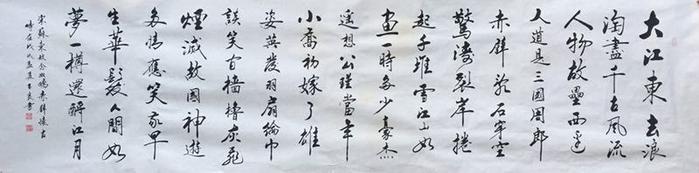 大江東去浪
淘盡千古風流
人物故壘西邊
人道是三國周郎
赤壁亂石穿空
驚濤裂岸捲
起千堆雪江山如
畫一時多少豪杰
遙想公瑾當年
小喬初嫁了雄
姿英發羽扇綸巾
談笑間檣櫓灰飛
煙滅故國神遊
多情應笑我早
生華髮人間如
夢一樽還酹江月
宋蘇東坡念奴嬌赤壁懷古
時在戊戌孟夏